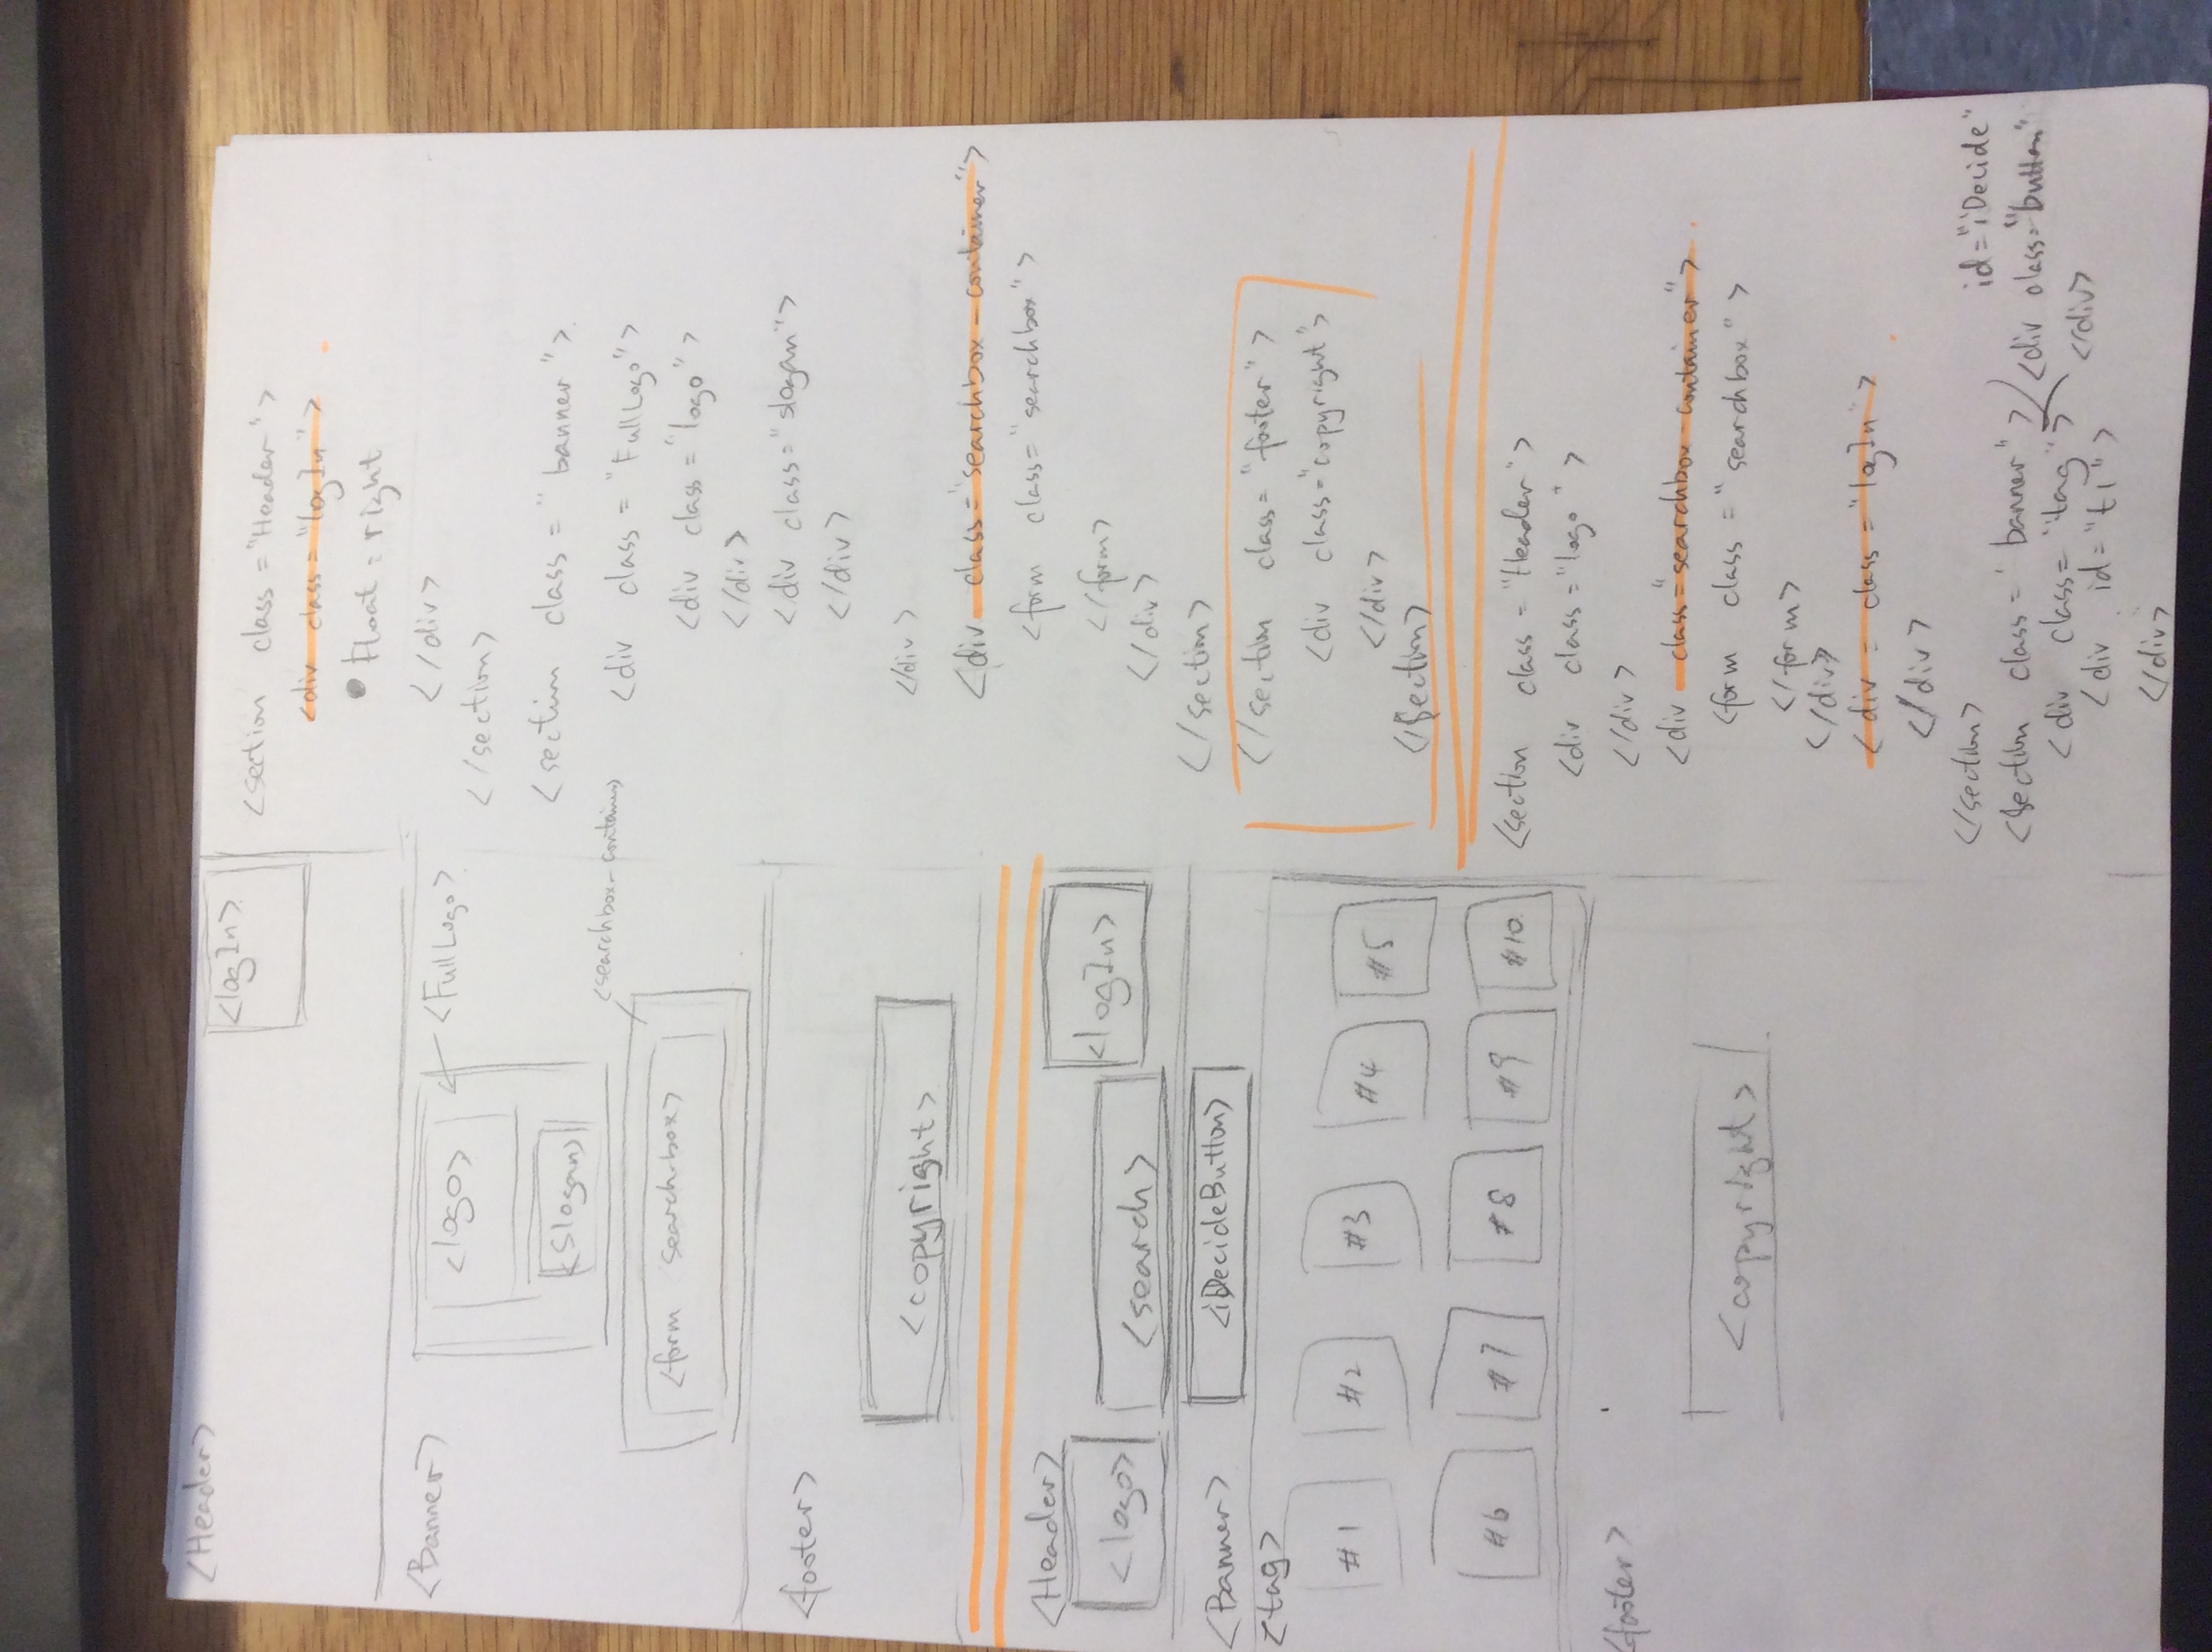 <Header>
<logIn>
<Banner>
<logo>
<FullLogo>
<Slogan>
<searchbox-container>
<form search-box>
<footer>
<copyright>
<Header>
<logo>
<search>
<logIn>
<Banner>
<iDecideButton>
<tag>
#1 #2 #3 #4 #5
#6 #7 #8 #9 #10
<footer>
<copyright>
<section class="Header">
<div class="logIn">
• Float : right
</div>
</section>
<section class="banner">
<div class="FullLogo">
<div class="logo">
</div>
<div class="slogan">
</div>
</div>
<div class="searchbox-container">
<form class="searchbox">
</form>
</div>
</section>
</section class="footer">
<div class="copyright">
</div>
</section>
<section class="Header">
<div class="logo">
</div>
<div class="searchbox-container">
<form class="searchbox">
</form>
</div>
<div = class="logIn">
</div>
</section>
<section class='banner">
id="iDecide"
<div class="button"
</div>
<div class="tag">
<div id="t1">
</div>